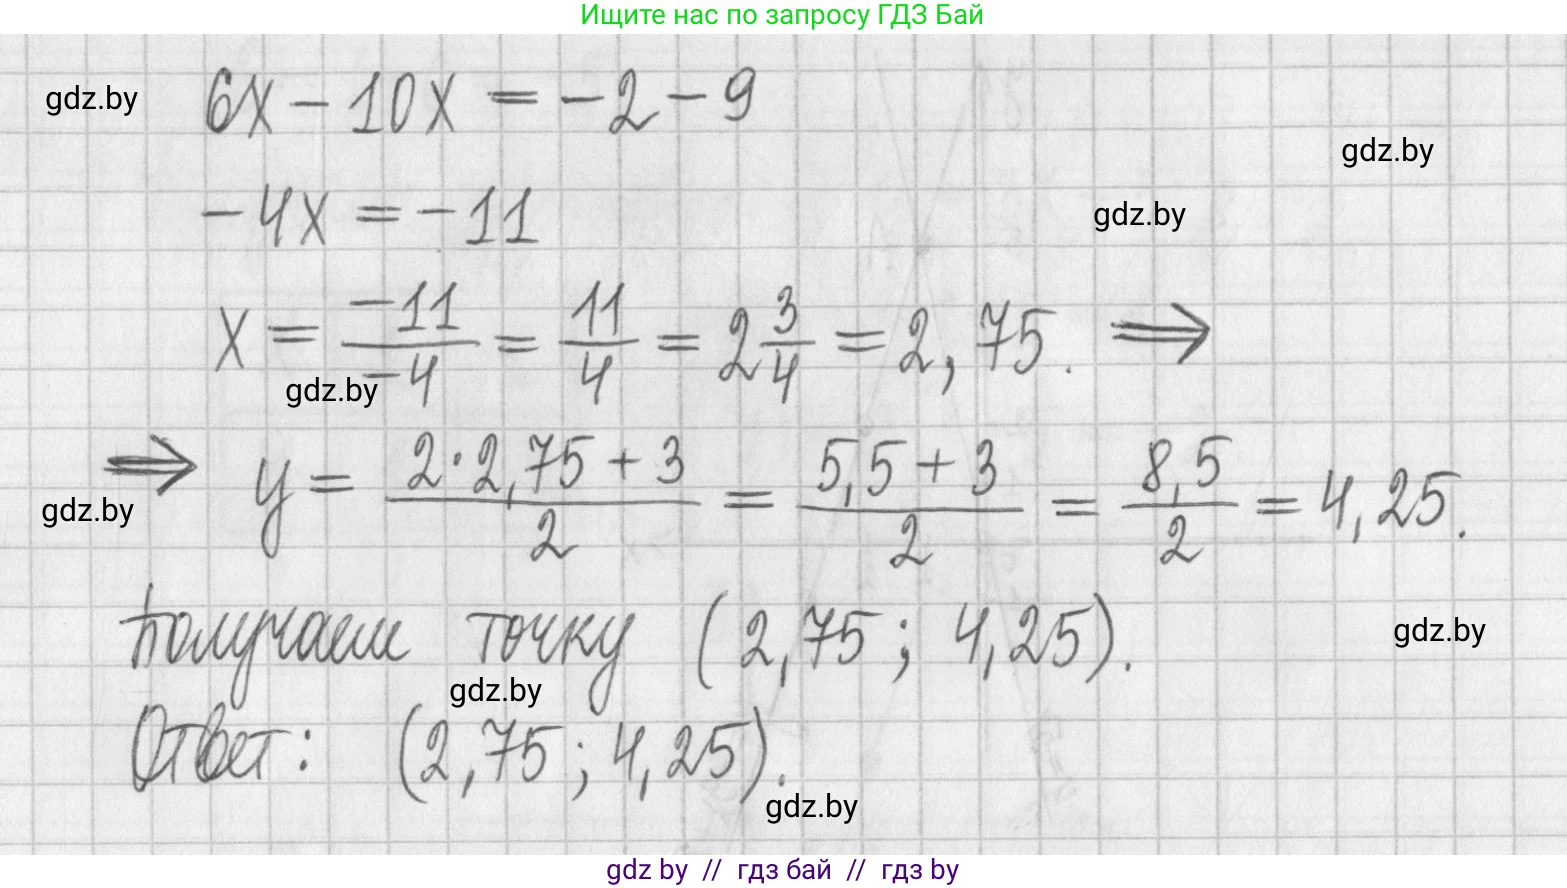 Ищите нас по запросу ГДЗ Бай
gdz.by
6x - 10x = -2 - 9
gdz.by
-4x = -11
gdz.by
x = -11/-4 = 11/4 = 2 3/4 = 2,75. ⇒
gdz.by
⇒ y = (2·2,75 + 3)/2 = (5,5 + 3)/2 = 8,5/2 = 4,25.
gdz.by
Получаем точку (2,75; 4,25).
gdz.by
gdz.by
Ответ: (2,75; 4,25).
gdz.by
gdz by // гдз бай // гдз by